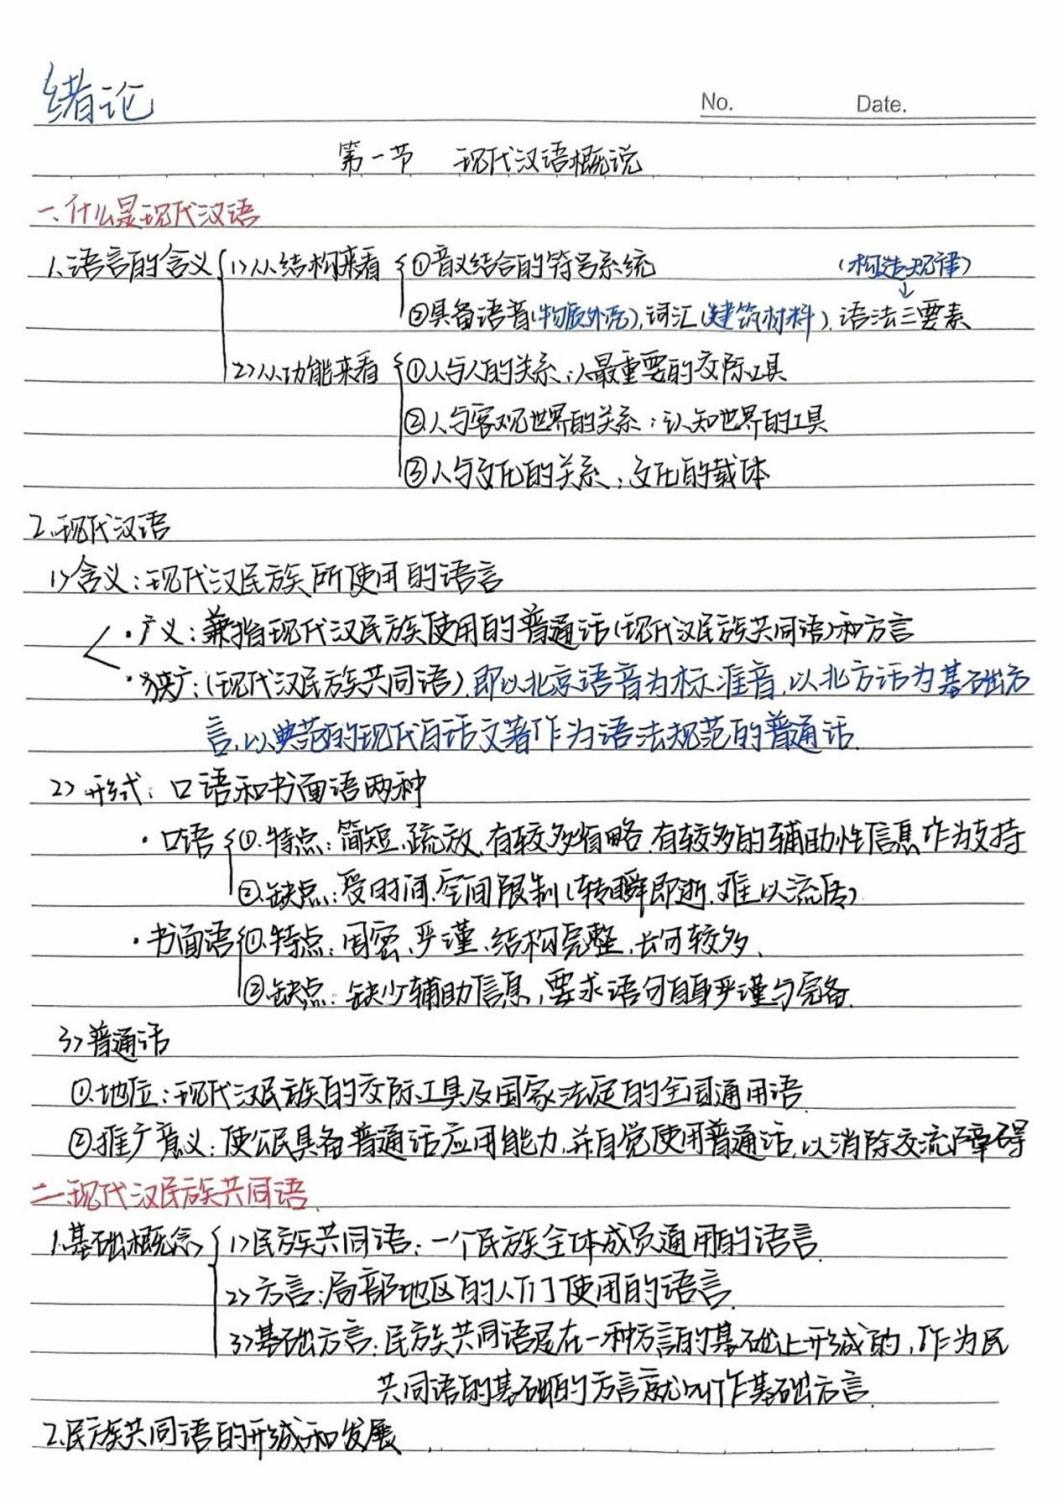 绪论
No. Date.
第一节 现代汉语概说
一、什么是现代汉语
1、语言的含义 1>从结构来看 ①音义结合的符号系统 (构造规律)
②具备语音(物质外壳)、词汇(建筑材料)、语法三要素
2>从功能来看 ①人与人的关系:人最重要的交际工具
②人与客观世界的关系:认知世界的工具
③人与文化的关系:文化的载体
2.现代汉语
1>含义:现代汉民族所使用的语言
·广义:兼指现代汉民族使用的普通话(现代汉民族共同语)和方言
·狭广:(现代汉民族共同语),即以北京语音为标准音,以北方话为基础方
言,以典范的现代白话文著作为语法规范的普通话.
2>形式:口语和书面语两种
·口语 ①.特点:简短、疏放、有较多省略、有较多的辅助性信息作为支持
②.缺点:受时间、空间限制(转瞬即逝、难以流传)
·书面语 ①.特点:周密、严谨、结构完整、长句较多、
②.缺点:缺少辅助信息,要求语句自身严谨与完备.
3>普通话
①.地位:现代汉民族的交际工具及国家法定的全国通用语
②推广意义:使公民具备普通话应用能力,并自觉使用普通话,以消除交流障碍
二、现代汉民族共同语
1.基础概念 1>民族共同语:一个民族全体成员通用的语言.
2>方言:局部地区的人们使用的语言.
3>基础方言:民族共同语是在一种方言的基础上形成的,作为民
共同语的基础的方言就叫作基础方言.
2.民族共同语的形成和发展